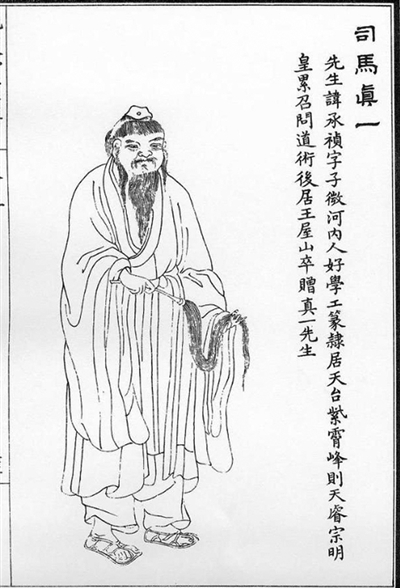 司馬真一
先生諱承禎字子微河内人好學工篆隸居天台紫霄峰則天睿宗明
皇累召問道術後居王屋山卒贈真一先生